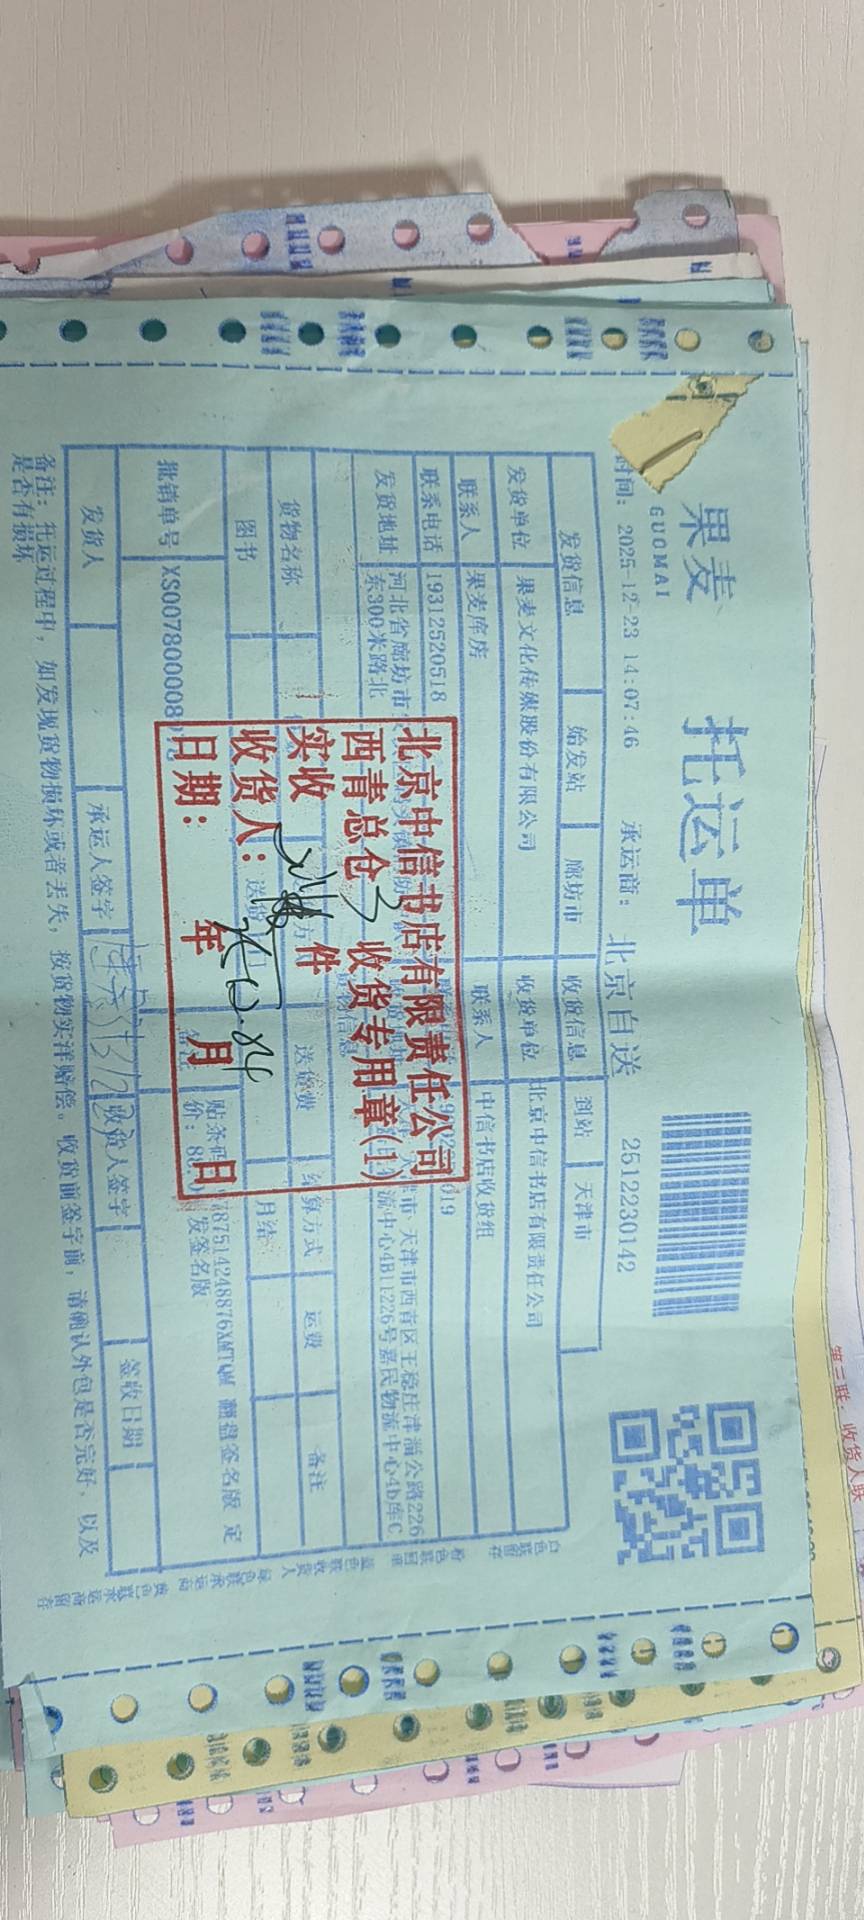 果麦 托运单
GUOMAI
时间: 2025-12-23 14:07:46 承运商: 北京自送 2512230142
发货信息 始发站 廊坊市 收货信息 到站 天津市
发货单位 果麦文化传媒股份有限公司 收货单位 北京中信书店有限责任公司
联系人 果麦库房 联系人 中信书店收货组
联系电话 19312520518
发货地址 河北省廊坊市
东300米路北
津市西青区王稳庄津淄公路226
流中心4B11226号嘉民物流中心4b库C
货物名称 送货费 结算方式 运费 备注
图书 月结
批销单号 XS0078000080
贴条码
87514248876XMTQM 翻盘签名版 定
价: 8
发签名版
发货人 承运人签字 收货人签字 签收日期
备注: 托运过程中, 如发现货物损坏或者丢失, 按货物实洋赔偿。收货前签字前, 请确认外包是否完好, 以及
是否有损坏
北京中信书店有限责任公司
西青总仓 收货专用章(1)
实收 3 件
收货人:
日期: 年 月 日
白色联留存
粉色联回单
蓝色联收货人
绿色联承运商
黄色联承运商留存
第三联: 收货人联